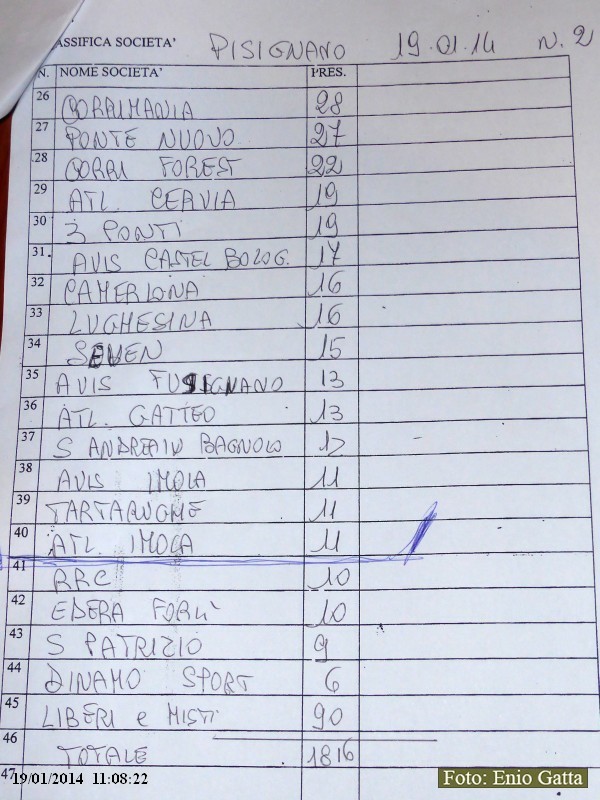 CLASSIFICA SOCIETA' PISIGNANO 19.01.14 N. 2
N. NOME SOCIETA' PRES.
26 CORRIMANIA 28
27 PONTE NUOVO 27
28 CORRI FOREST 22
29 ATL. CERVIA 19
30 3 PONTI 19
31. AVIS CASTEL BOLOG. 17
32 CAMERLONA 16
33 LUGHESINA 16
34 SEVEN 15
35 AVIS FUSIGNANO 13
36 ATL. GATTEO 13
37 S ANDREA IN BAGNOLO 12
38 AVIS IMOLA 11
39 TARTARUGHE 11
40 ATL. IMOLA 11
41 RRC 10
42 EDERA FORLÌ 10
43 S PATRIZIO 9
44 DINAMO SPORT 6
45 LIBERI e MISTI 90
46 TOTALE 1816
47
19/01/2014 11:08:22
Foto: Enio Gatta